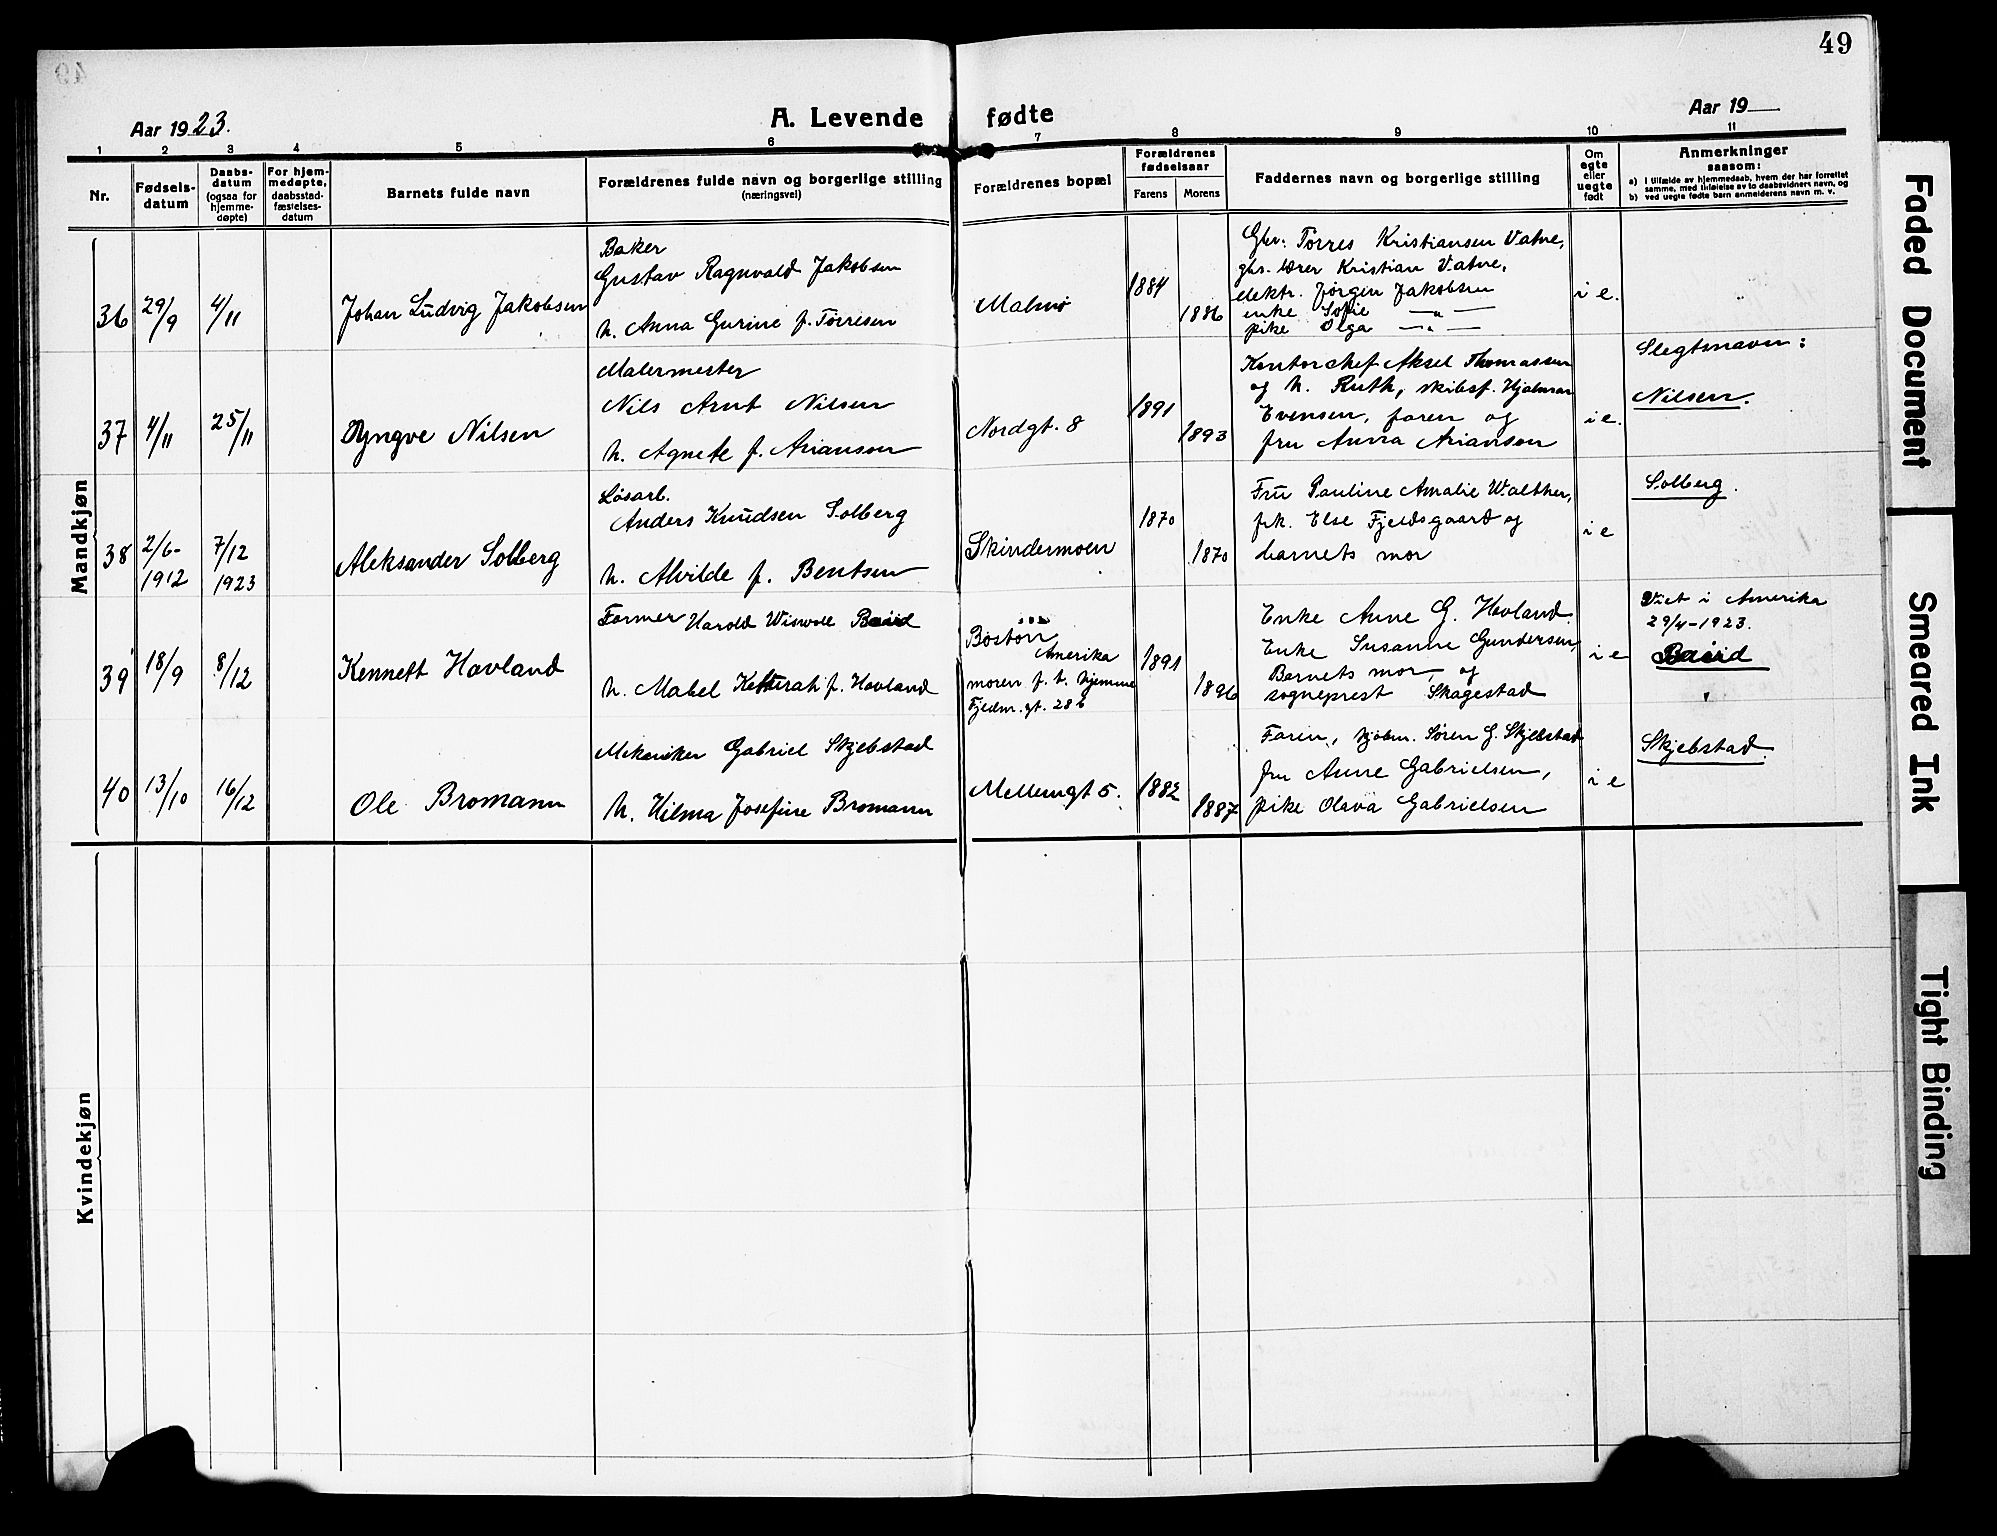 49
Aar 1923.
A. Levende fødte
Aar 19
1 2 3 4 5 6 7 8 9 10 11
Nr.
Fødsels-
datum
Daabs-
datum
(ogsaa for
hjemme-
døpte)
For hjem-
medøpte,
daabsstad-
fæstelses-
datum
Barnets fulde navn
Forældrenes fulde navn og borgerlige stilling
(næringsvei)
Forældrenes bopæl
Forældrenes
fødselsaar
Farens Morens
Faddernes navn og borgerlige stilling
Om
egte
eller
uegte
født
Anmerkninger
saasom:
a) I tilfælde av hjemmedaab, hvem der har forrettet
samme, med tilføielse av to daabsvidners navn, og
b) ved uegte fødte barn anmelderens navn m. v.
Mandkjøn
36 29/9 4/11 Johan Ludvig Jakobsen
Baker
Gustav Ragnvald Jakobsen
h. Anna Gurine f. Torresen
Malmø
1884
1886
Gbr. Torres Kristiansen Vatne,
gbs. lærer Kristian Vatne,
elektr. Jørgen Jakobsen
enke Sofie — " —
pike Olga — " —
i e.
37 4/11 25/11 Yngve Nilsen
Malermester
Nils Arnt Nilsen
h. Agnete f. Arianson
Nordgt. 8
1891
1893
Kontorchef Aksel Thomassen
og h. Ruth, skibsf. Hjalmar
Evensen, faren og
fru Anna Arianson
i e.
Slegtsnavn:
Nilsen.
38 2/6-1912 7/12 1923 Aleksander Solberg
Løsarb.
Anders Knudsen Solberg
h. Alvilde f. Bentsen
Skindermoen
1870
1870
Fru Pauline Amalie Walther,
frk. Else Fjeldsgaard og
barnets mor
i e
Solberg.
39 18/9 8/12 Kennett Hovland
Former Harold Baird
h. Mabel f. Hovland
Boston
Amerika
moren f. t. hjemme
Fjeldm. gt. 28 b
1891
1896
Enke Anne G. Hovland.
Enke Susanne Gundersen,
Barnets mor, og
sogneprest Skagestad
i e
Viet i Amerika
29/4-1923.
Baird
40 13/10 16/12 Ole Bromann
Mekaniker Gabriel Skjebstad
h. Hilma Josefine Bromann
Mellemgt 5.
1882
1887
Faren, Søren G. Skjebstad
fru Anne Gabrielsen,
pike Olava Gabrielsen
i e
Skjebstad.
Kvindekjøn
Faded Document
Smeared Ink
Tight Binding